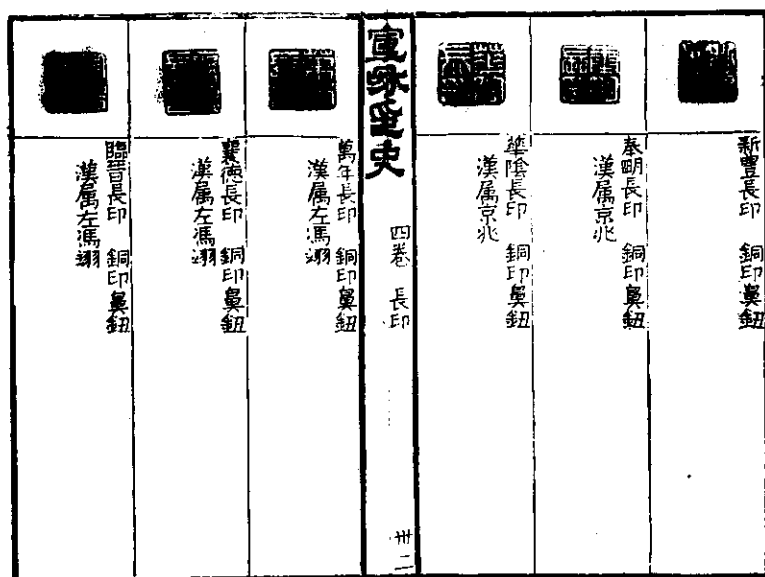 新豐長印　銅印鼻鈕
奉朙長印　銅印鼻鈕
漢属京兆
華陰長印　銅印鼻鈕
漢属京兆
宣和印史
四卷　長印
卅二
萬年長印　銅印鼻鈕
漢属左馮翊
褱徳長印　銅印鼻鈕
漢属左馮翊
臨晉長印　銅印鼻鈕
漢属左馮翊